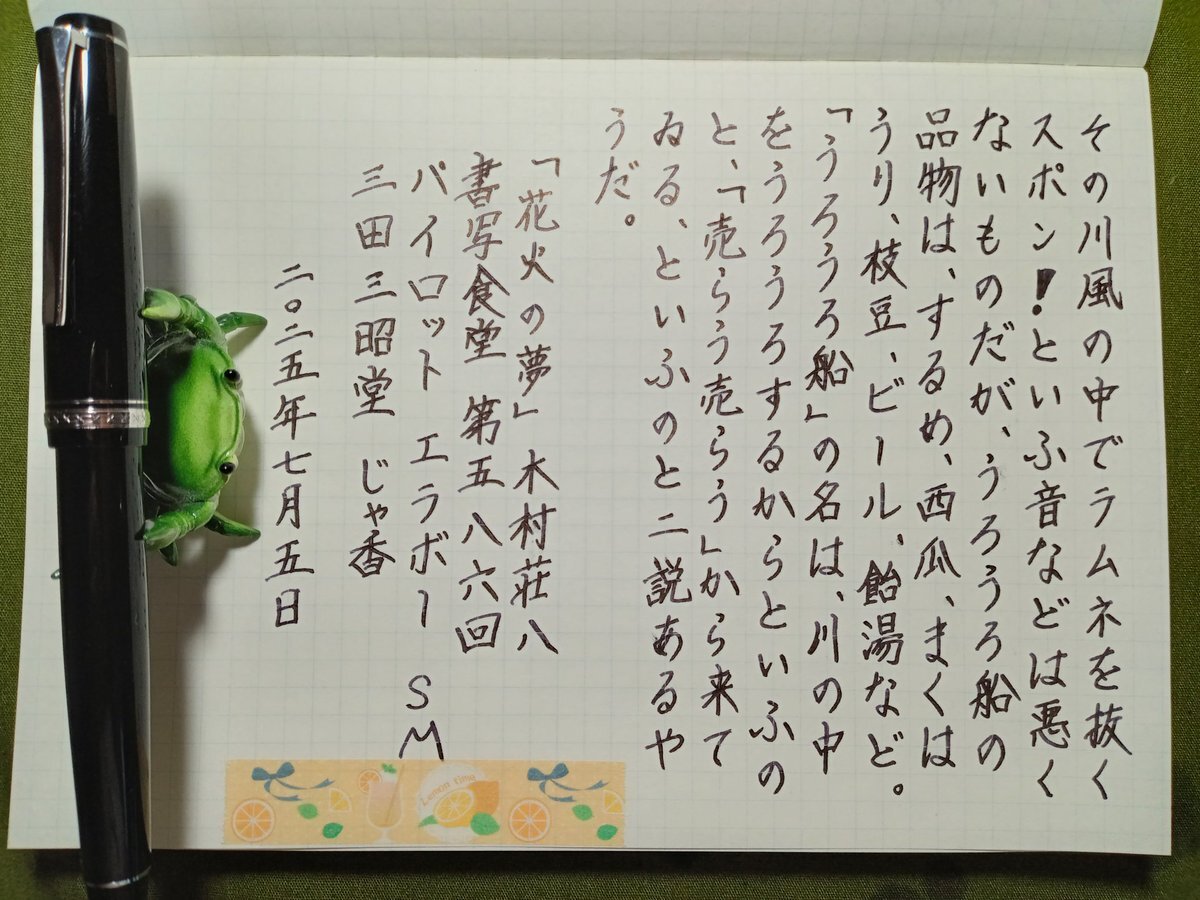 その川風の中でラムネを抜く
スポン!といふ音などは悪く
ないものだが、うろうろ船の
品物は、するめ、西瓜、まくは
うり、枝豆、ビール、飴湯など。
「うろうろ船」の名は、川の中
をうろうろするからといふの
と、「売らう売らう」から来て
ゐる、といふのと二説あるや
うだ。
「花火の夢」木村荘八
書写食堂 第五八六回
パイロット エラボー SM
三田三昭堂 じゃ香
二〇二五年七月五日
Lemon time